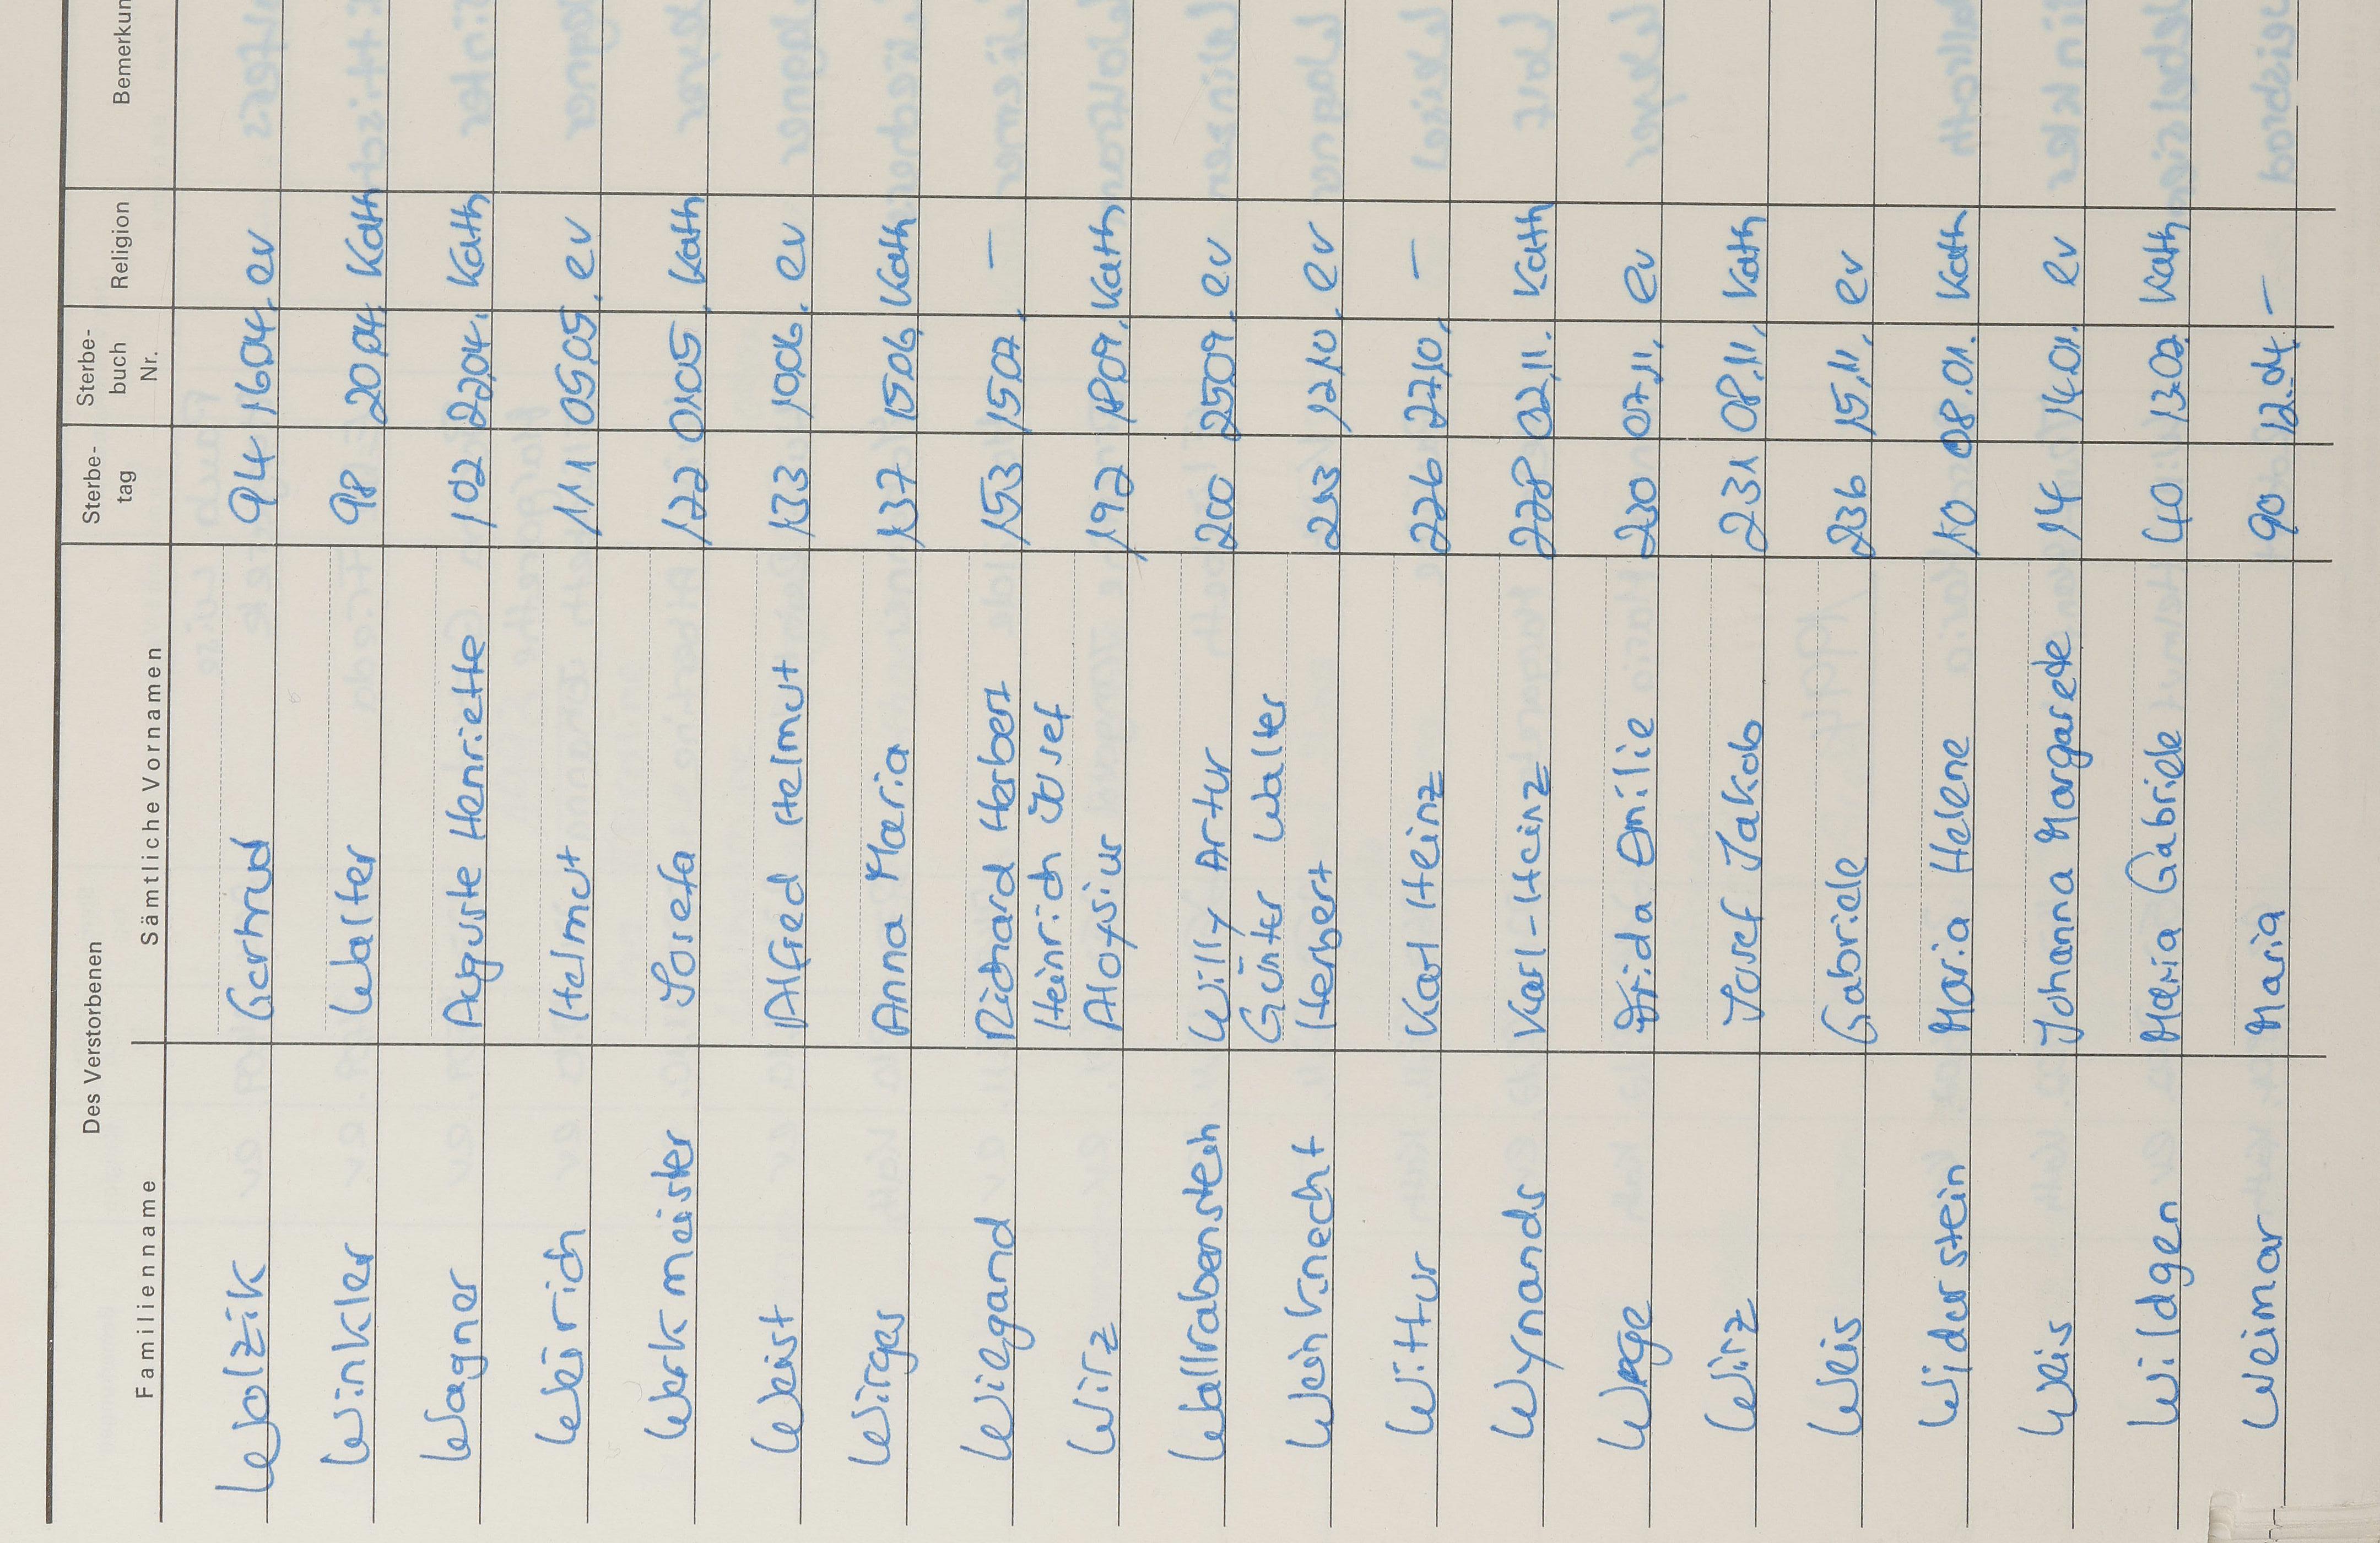 Des Verstorbenen
Familienname Sämtliche Vornamen Sterbe-tag Sterbe-buch Nr. Religion Bemerkun
Wolzik Gertrud 94 16.04. ev
Winkler Walter 98 20.04. Kath
Wagner Auguste Henriette 102 22.04. Kath
Weirich Helmut 111 05.05. ev
Werkmeister Josefa 122 01.05. Kath
Weist Alfred Helmut 133 10.06. ev
Wirges Anna Maria 137 15.06. Kath
Wiegand Richard Herbert 153 15.07. —
Heinrich Josef
Wirz Aloysius 192 18.09. Kath
Wallrabenstein Willy Artur 200 25.09. ev
Günter Walter
Weinknecht Herbert 213 12.10. ev
Wittur Karl Heinz 226 27.10. —
Wynands Karl-Heinz 228 02.11. Kath
Wege Frida Emilie 230 07.11. ev
Wirz Josef Jakob 231 08.11. Kath
Weis Gabriele 236 15.11. ev
Widerstein Maria Helene 10 08.01. Kath
Weis Johanna Margarete 14 14.01. ev
Wildgen Maria Gabriele 40 13.02. Kath
Weimar Maria 90 12.04. —